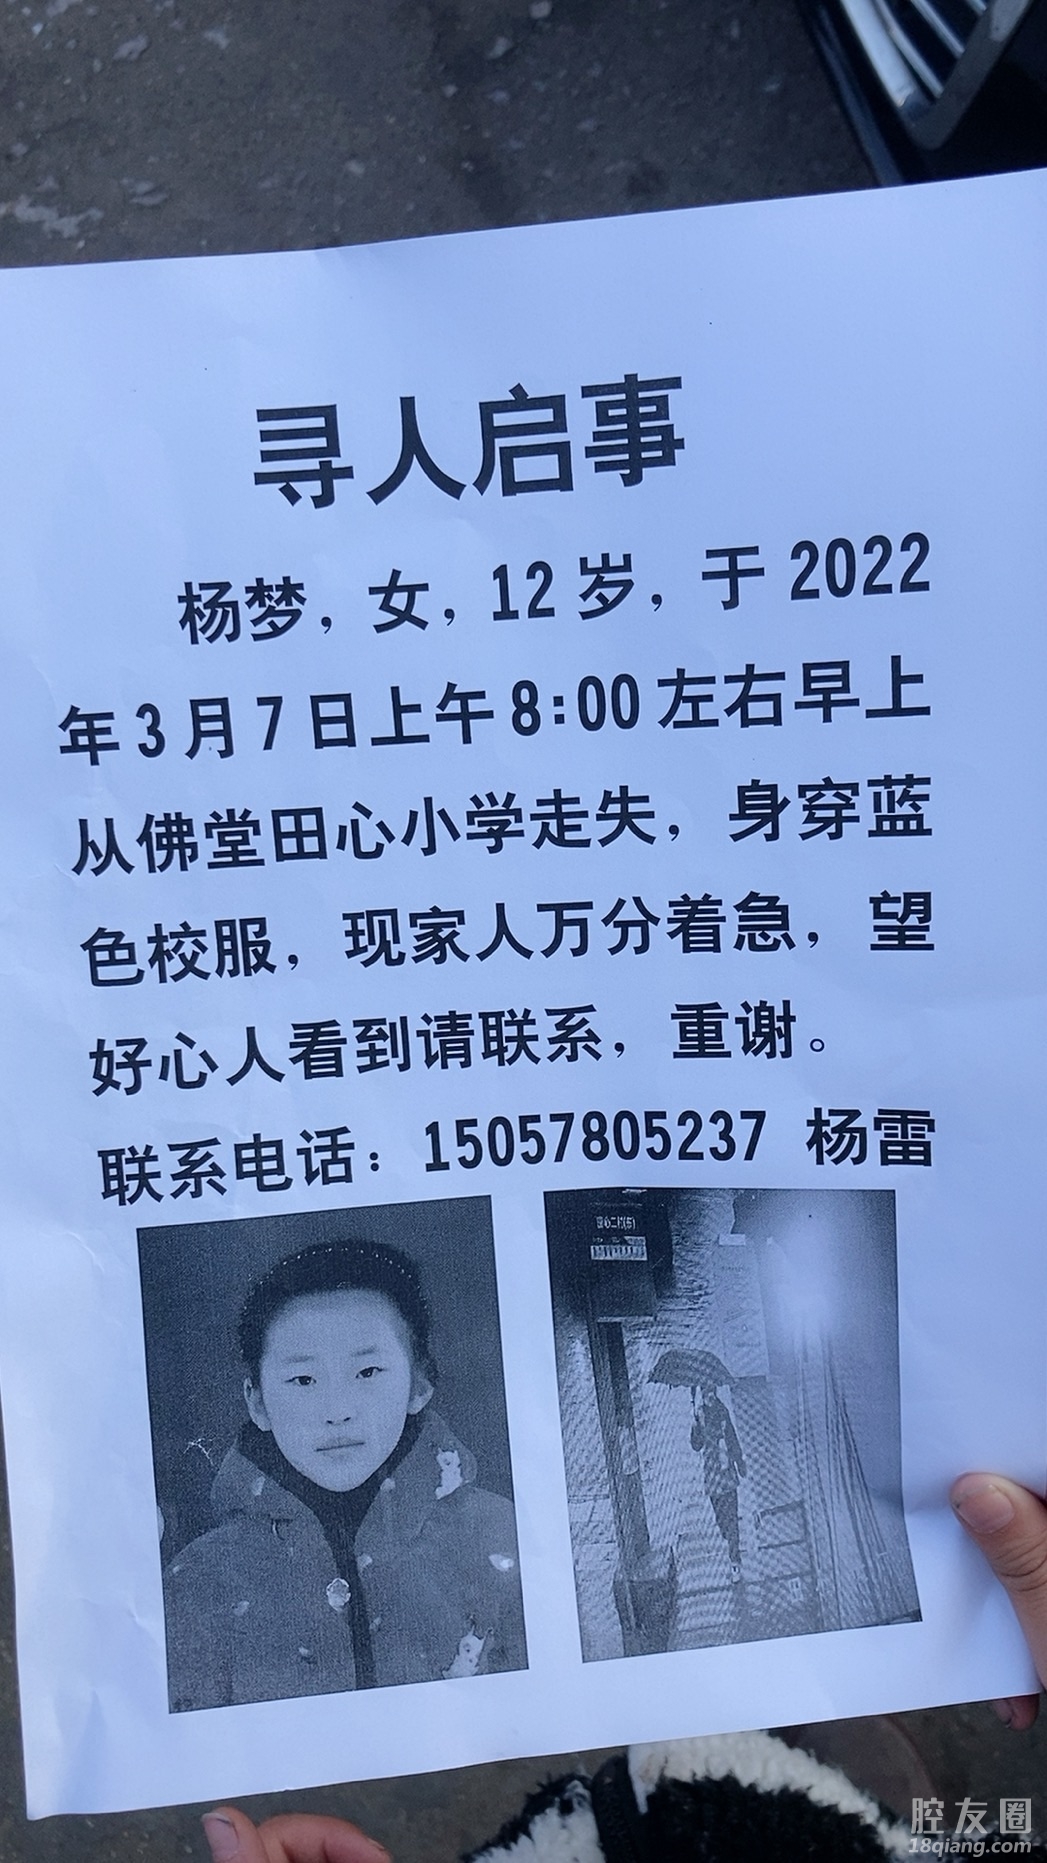 寻人启事
杨梦，女，12岁，于2022
年3月7日上午8:00左右早上
从佛堂田心小学走失，身穿蓝
色校服，现家人万分着急，望
好心人看到请联系，重谢。
联系电话：15057805237 杨雷
腔友圈
18qiang.com